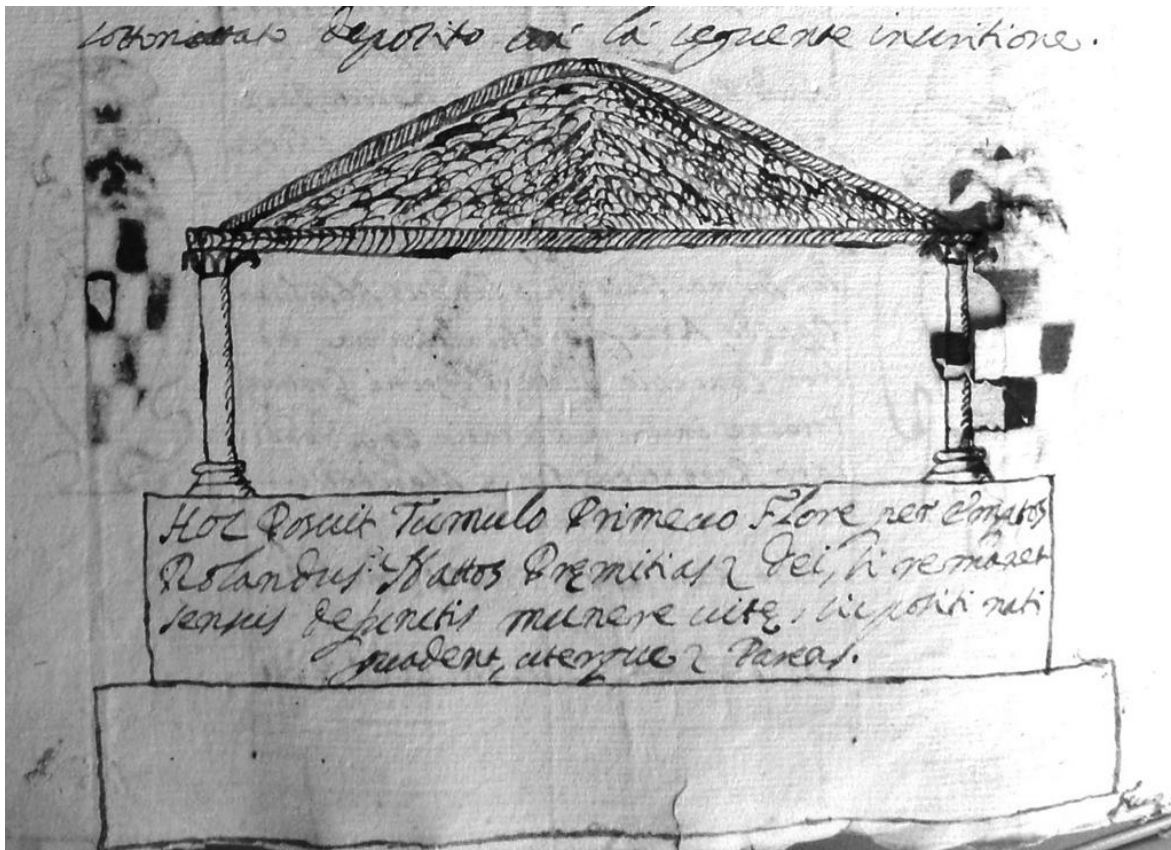 sottonottato deposito con la seguente inscritione.
Hoc Posuit Tumulo Primeuo Flore per emptos
Rolandus Nattos Pręmitias 2 Dei, si remanet
sensus defunctis munere uitę, sic positi nati
gaudent, uterque 2 Pareas.